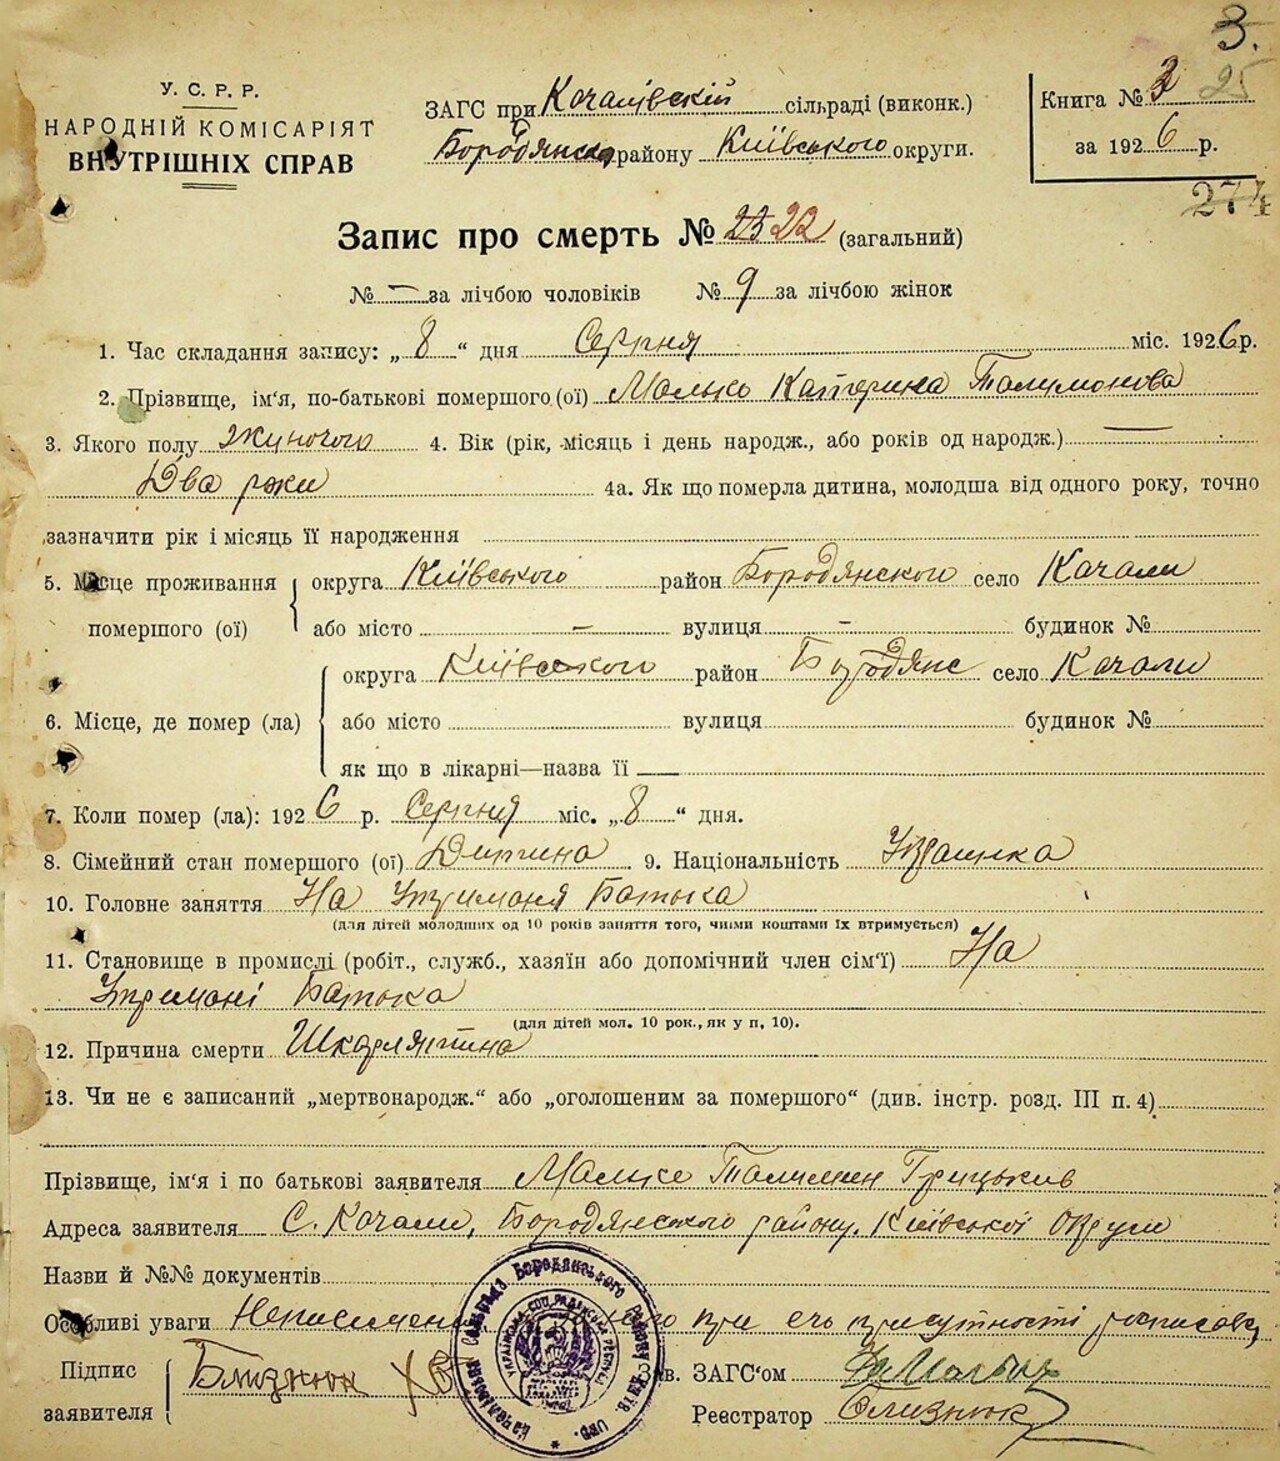 3.
25
У. С. Р. Р.
НАРОДНІЙ КОМІСАРІЯТ
ВНУТРІШНІХ СПРАВ
ЗАГС при Качалівскій сільраді (виконк.)
Бородянско району Київського округи.
Книга № 3
за 1926 р.
274
Запис про смерть № 23 22 (загальний)
№ — за лічбою чоловіків № 9 за лічбою жінок
1. Час складання запису: „ 8 “ дня Серпня міс. 1926 р.
2. Прізвище, ім‘я, по-батькові помершого (ої) Малько Катерина Талимонова
3. Якого полу жиночого 4. Вік (рік, місяць і день народж., або років од народж.) —
Два роки 4а. Як що померла дитина, молодша від одного року, точно
зазначити рік і місяць її народження
5. Місце проживання помершого (ої) округа Київського район Бородянского село Качали
або місто – вулиця – будинок №
6. Місце, де помер (ла) округа Київского район Бородянс село Качали
або місто вулиця будинок №
як що в лікарні—назва її —
7. Коли помер (ла): 1926 р. Серпня міс. „ 8 “ дня.
8. Сімейний стан помершого (ої) Дитина 9. Національність Украинка
10. Головне заняття На Утриманя Батька
(для дітей молодших од 10 років заняття того, чиїми коштами їх втримується)
11. Становище в промислі (робіт., служб., хазяїн або допомічний член сім‘ї) На
Утримані Батька
(для дітей мол. 10 рок., як у п. 10).
12. Причина смерти Шкарлятина
13. Чи не є записаний „мертвонародж.“ або „оголошеним за помершого“ (див. інстр. розд. III п. 4)
Прізвище, ім‘я і по батькові заявителя Малько Талимон Грицьков
Адреса заявителя С. Качали, Бородянского району. Київської округи
Назви й №№ документів
Особливі уваги при его присутності
Підпис заявителя Близнюк
Зав. ЗАГС‘ом
Реєстратор Близнюк
Качалівська Сільрада Бородянського району Київ. Окр.
УКРАЇНСЬКА СОЦ. РАДЯНСЬКА РЕСПУБ.